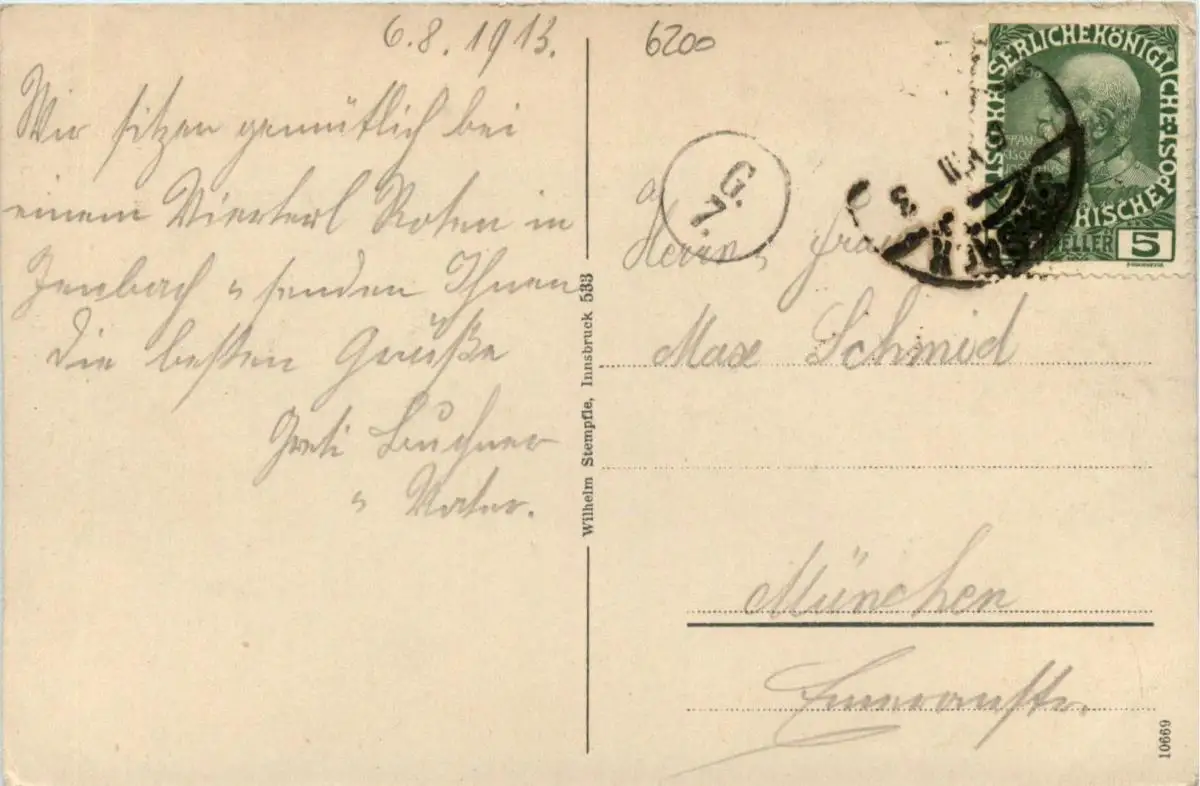 6.8.1913.
Wir sitzen gemütlich bei
einem Vierterl Roten in
Jenbach u. senden Ihnen
die besten Grüße
Greti Buchner
u. Vater.
Wilhelm Stempfle, Innsbruck 533
6200
G.
7.
KAISERLICHE KÖNIGLICHE
POST
5
Herrn u. Frau
Max Schmid
München
Emeranstr.
10669